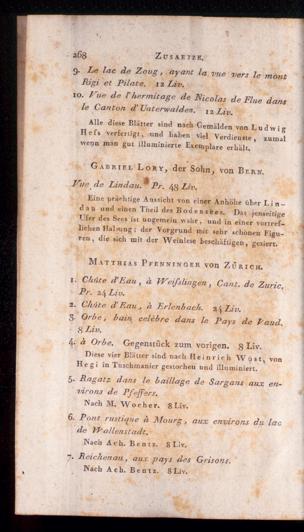 268 ZUSAETZE.
9. Le lac de Zoug, ayant la vue vers le mont
Rigi et Pilate. 12 Liv.
10. Vue de l'hermitage de Nicolas de Flue dans
le Canton d'Unterwalden. 12 Liv.
Alle diese Blätter sind nach Gemälden von Ludwig
Hefs verfertigt, und haben viel Verdienste, zumal
wenn man gut illuminirte Exemplare erhält.
GABRIEL LORY, der Sohn, von BERN.
Vue de Lindau. Pr. 48 Liv.
Eine prächtige Aussicht von einer Anhöhe über Lin-
dau und einen Theil des Bodensees. Das jenseitige
Ufer des Sees ist ungemein wahr, und in einer vortref-
lichen Haltung; der Vorgrund mit sehr schönen Figu-
ren, die sich mit der Weinlese beschäftigen, geziert.
MATTHIAS PFENNINGER von ZÜRICH.
1. Chûte d'Eau, à Weifslingen, Cant. de Zuric.
Pr. 24 Liv.
2. Chûte d'Eau, à Erlenbach. 24 Liv.
3. Orbe, bain celèbre dans le Pays de Vaud.
8 Liv.
4. à Orbe. Gegenstück zum vorigen. 8 Liv.
Diese vier Blätter sind nach Heinrich Wüst, von
Hegi in Tuschmanier gestochen und illuminirt.
5. Ragatz dans le baillage de Sargans aux en-
virons de Pfeffers.
Nach M. Wocher. 8 Liv.
6. Pont rustique à Mourg, aux environs du lac
de Wallenstadt.
Nach Ach. Bentz. 8 Liv.
7. Reichenau, aux pays des Grisons.
Nach Ach. Bentz. 8 Liv.